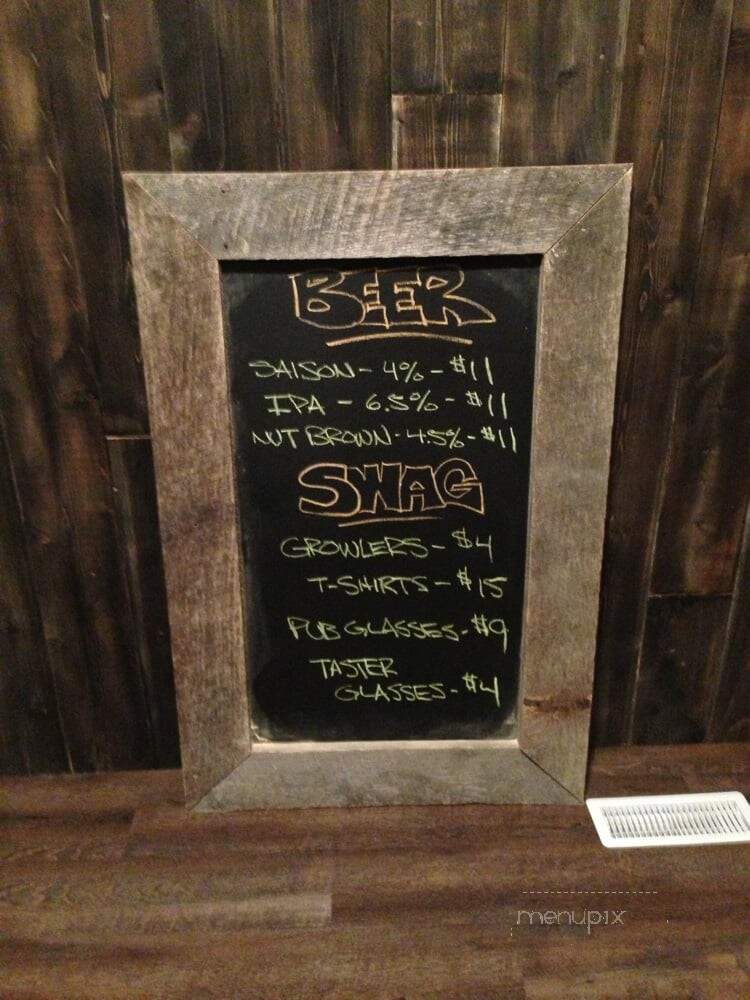 BEER
SAISON - 4% - $11
IPA - 6.5% - $11
NUT BROWN - 4.5% - $11
SWAG
GROWLERS - $4
T-SHIRTS - $15
PUB GLASSES - $9
TASTER
GLASSES - $4
menupix